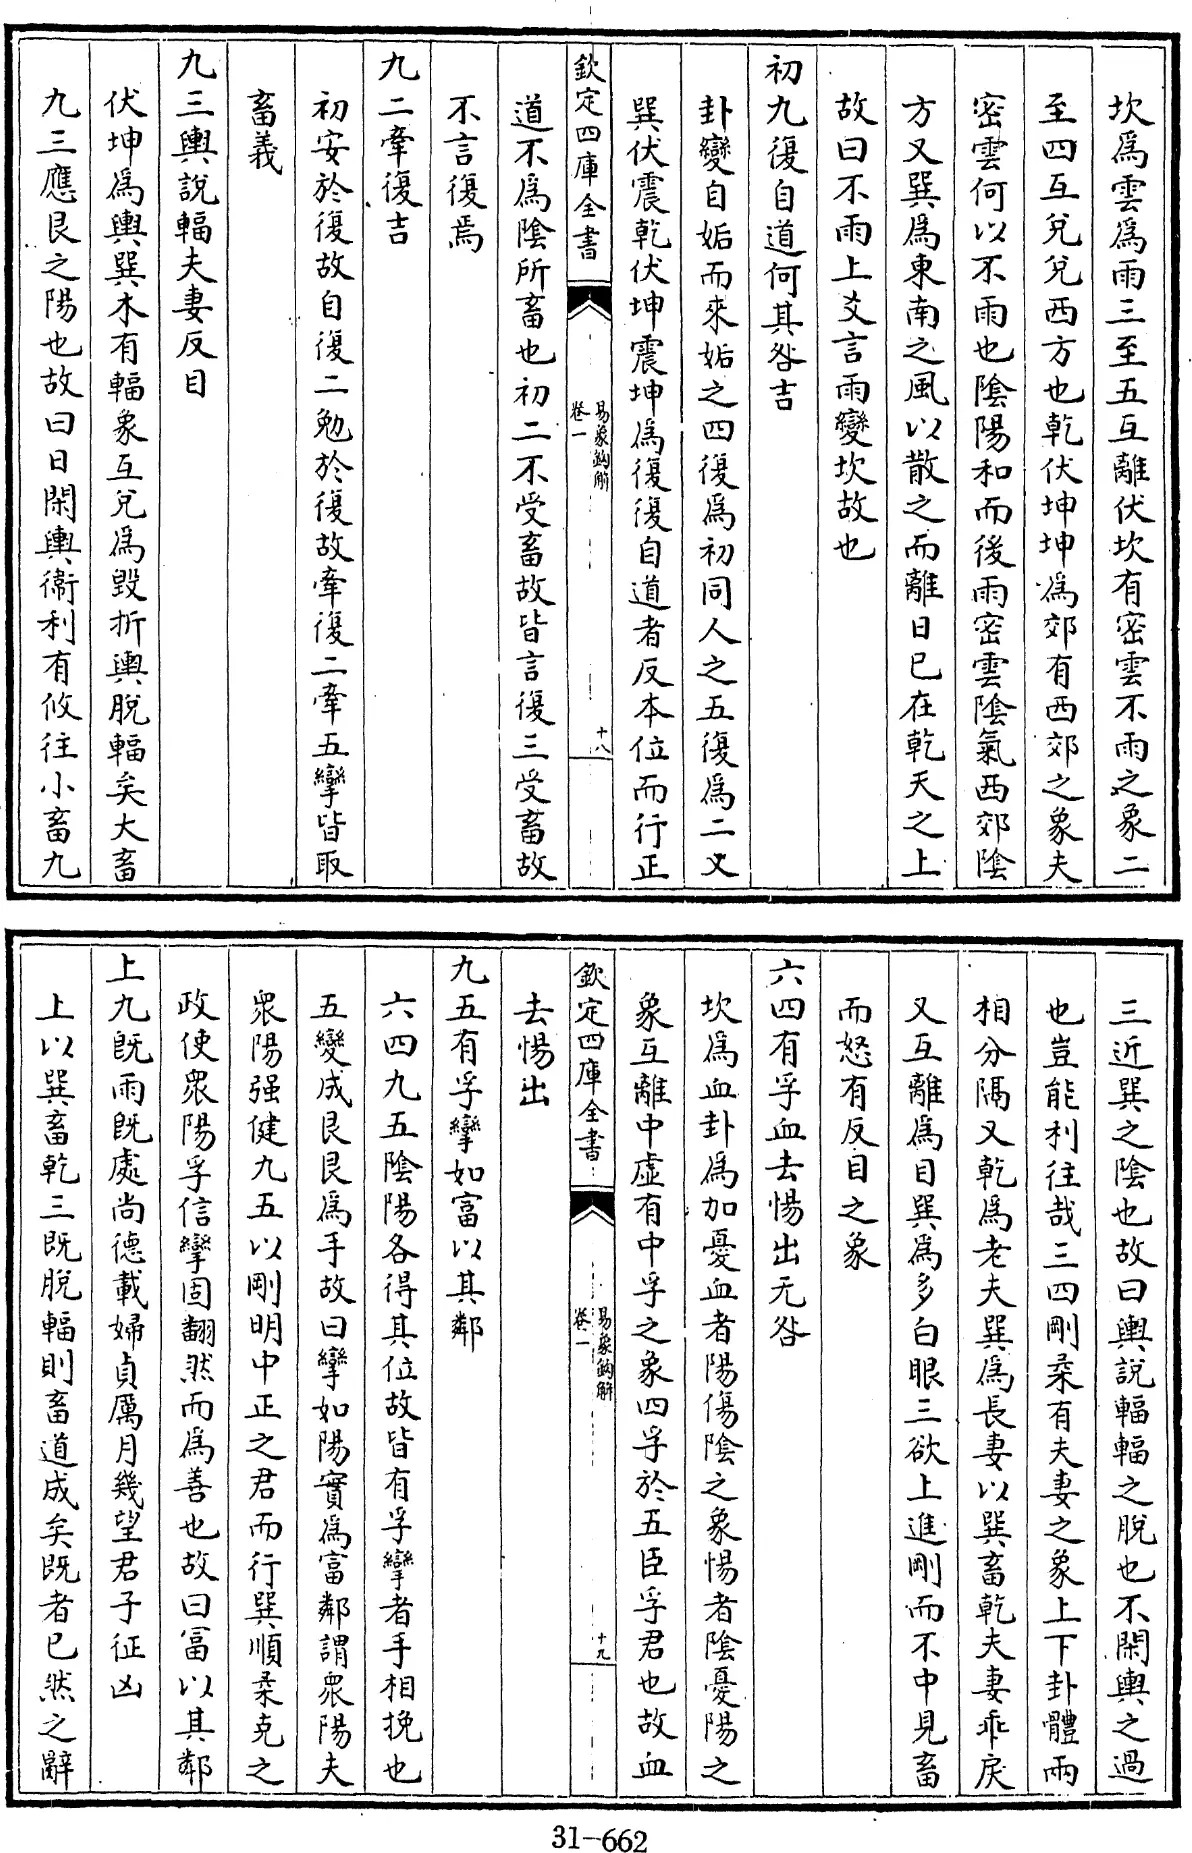 坎爲雲爲雨三至五互離伏坎有密雲不雨之象二
至四互兌兌西方也乾伏坤坤爲郊有西郊之象夫
密雲何以不雨也陰陽和而後雨密雲陰氣西郊陰
方又巽爲東南之風以散之而離日已在乾天之上
故曰不雨上爻言雨變坎故也
初九復自道何其咎吉
卦變自姤而來姤之四復爲初同人之五復爲二又
巽伏震乾伏坤震坤爲復復自道者反本位而行正
欽定四庫全書
易象鈎解
卷一
十八
道不爲陰所畜也初二不受畜故皆言復三受畜故
不言復焉
九二牽復吉
初安於復故自復二勉於復故牽復二牽五攣皆取
畜義
九三輿說輻夫妻反目
伏坤爲輿巽木有輻象互兌爲毀折輿脫輻矣大畜
九三應艮之陽也故曰日閑輿衞利有攸往小畜九
三近巽之陰也故曰輿說輻輻之脫也不閑輿之過
也豈能利往哉三四剛柔有夫妻之象上下卦體兩
相分隔又乾爲老夫巽爲長妻以巽畜乾夫妻乖戾
又互離爲目巽爲多白眼三欲上進剛而不中見畜
而怒有反目之象
六四有孚血去惕出无咎
坎爲血卦爲加憂血者陽傷陰之象惕者陰憂陽之
象互離中虛有中孚之象四孚於五臣孚君也故血
欽定四庫全書
易象鈎解
卷一
十九
去惕出
九五有孚攣如富以其鄰
六四九五陰陽各得其位故皆有孚攣者手相挽也
五變成艮艮爲手故曰攣如陽實爲富鄰謂衆陽夫
衆陽强健九五以剛明中正之君而行巽順柔克之
政使衆陽孚信攣固翻然而爲善也故曰富以其鄰
上九旣雨旣處尚德載婦貞厲月幾望君子征凶
上以巽畜乾三旣脫輻則畜道成矣旣者已然之辭
31-662